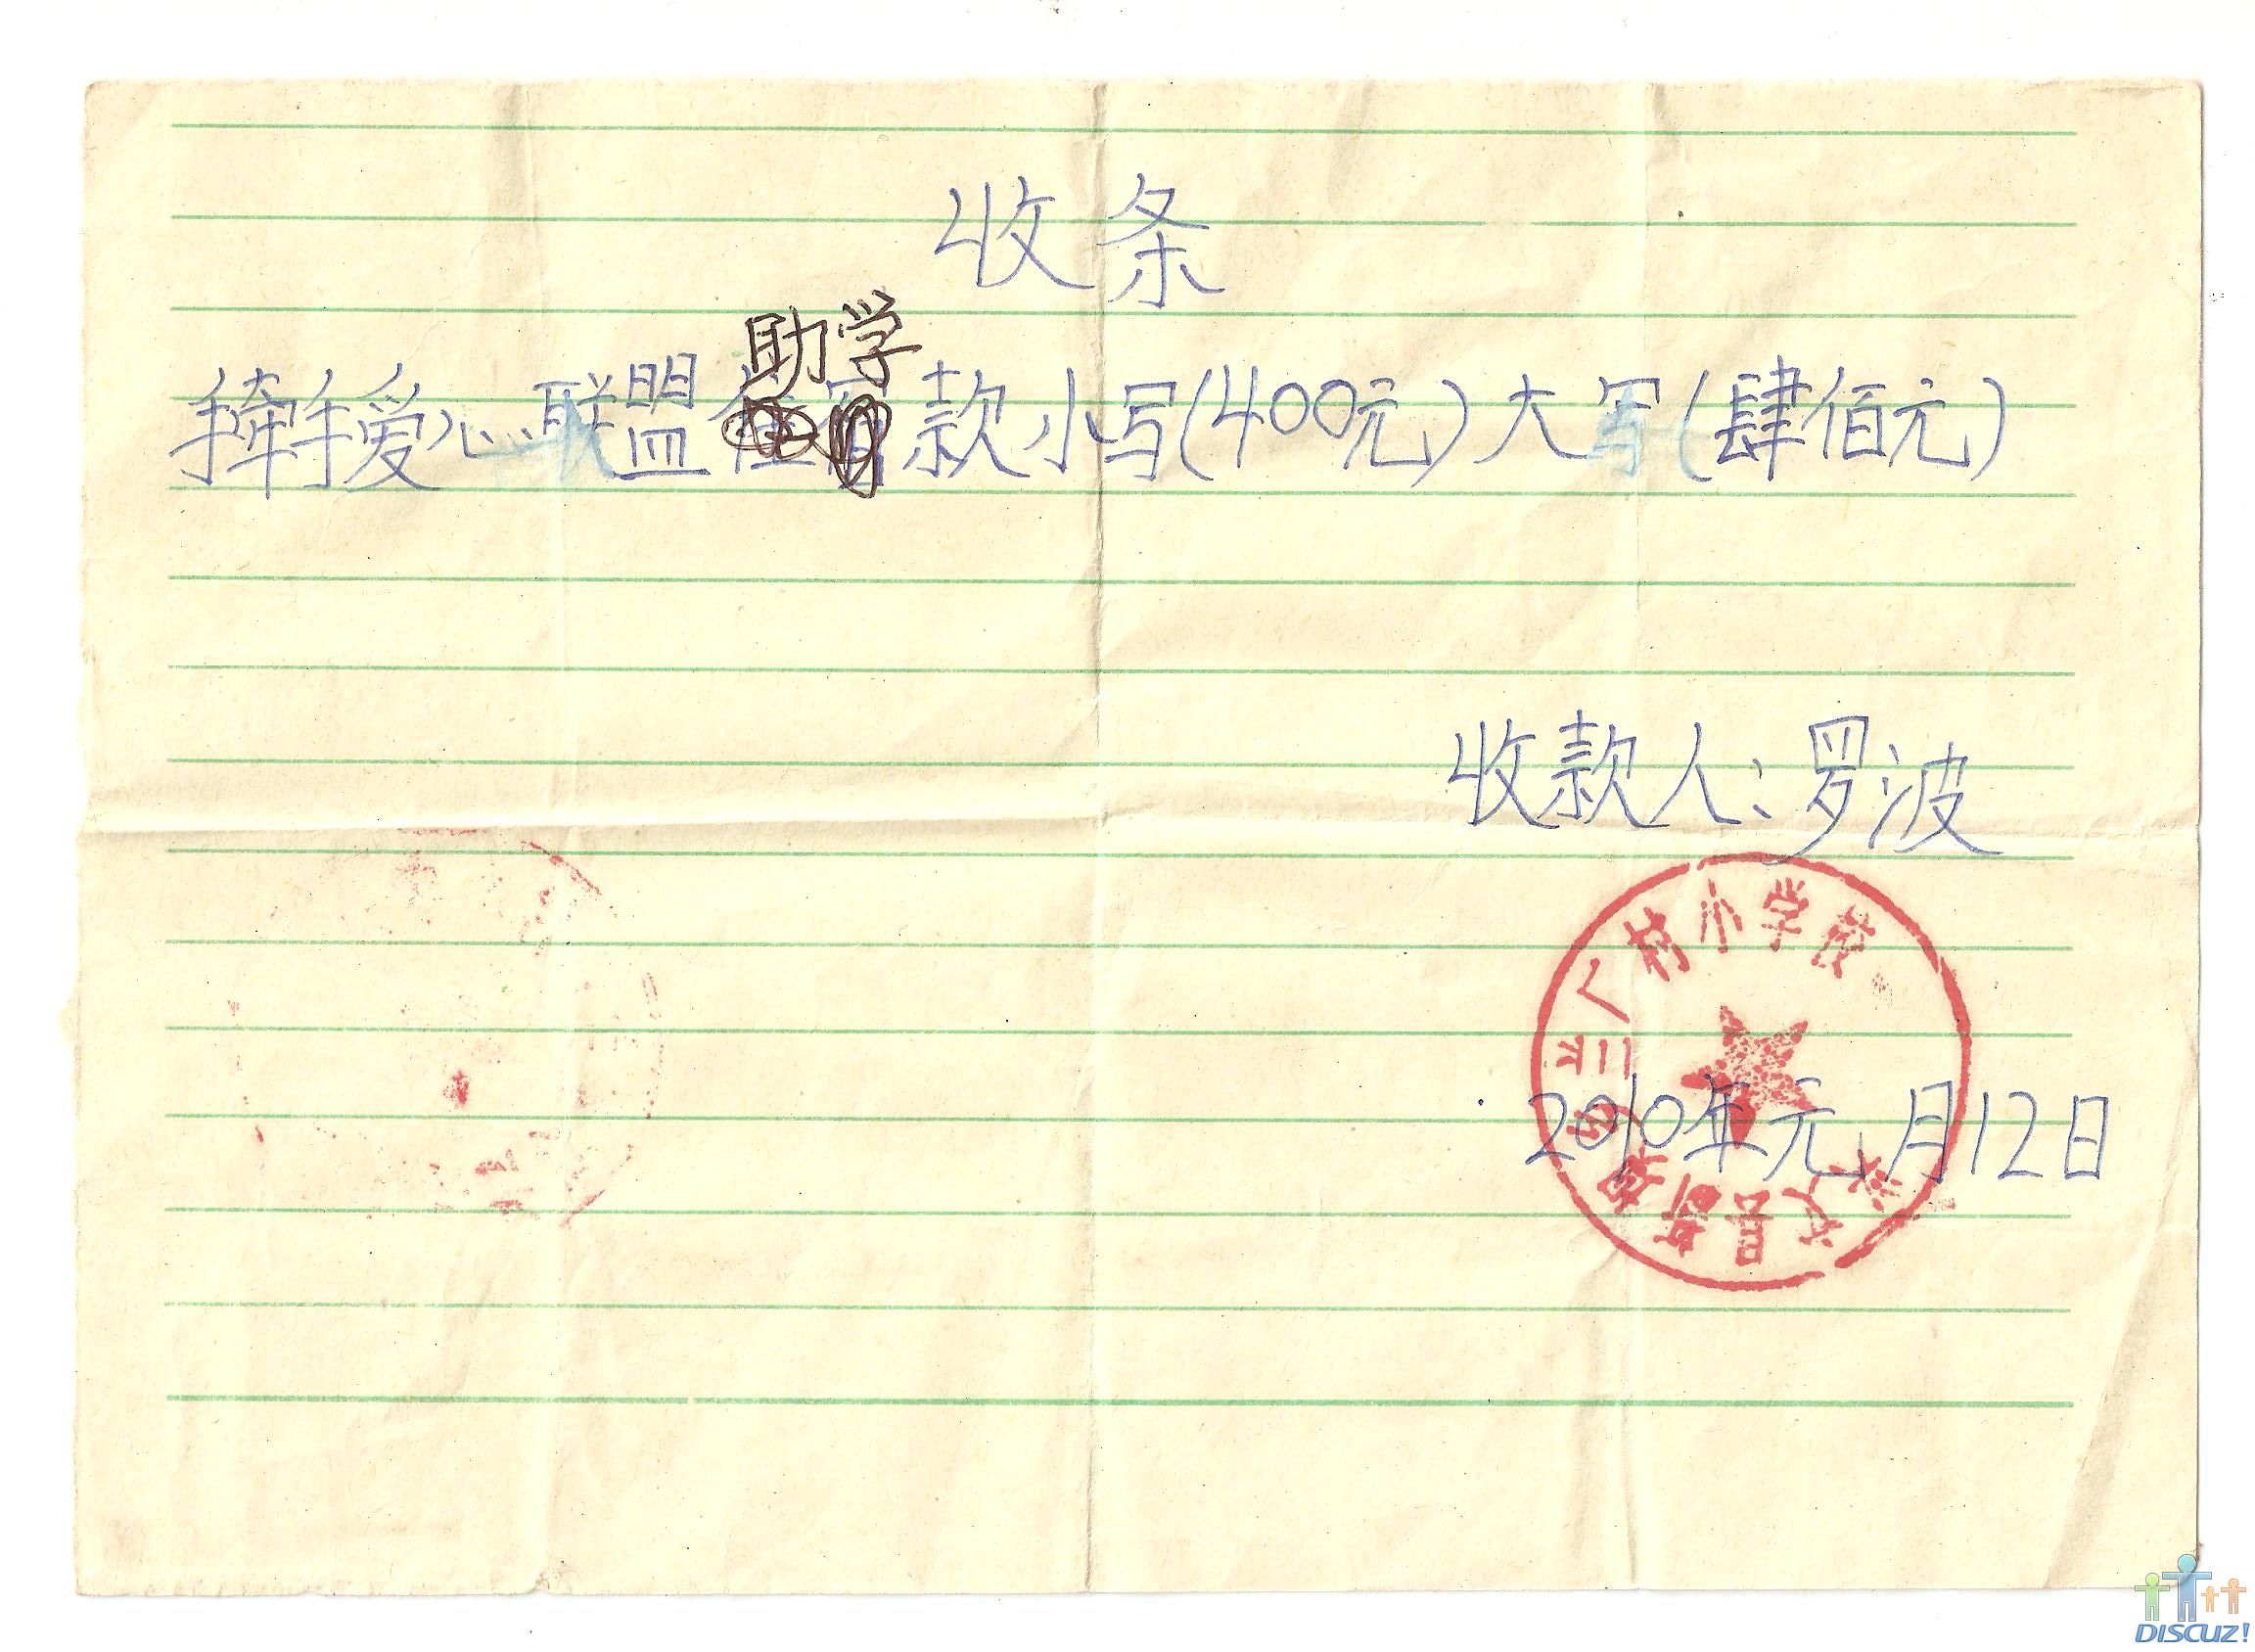 收条
助学
牵手爱心联盟款小写(400元)大写(肆佰元)
收款人:罗波
村小学校
2010年元月12日
DISCUZ!